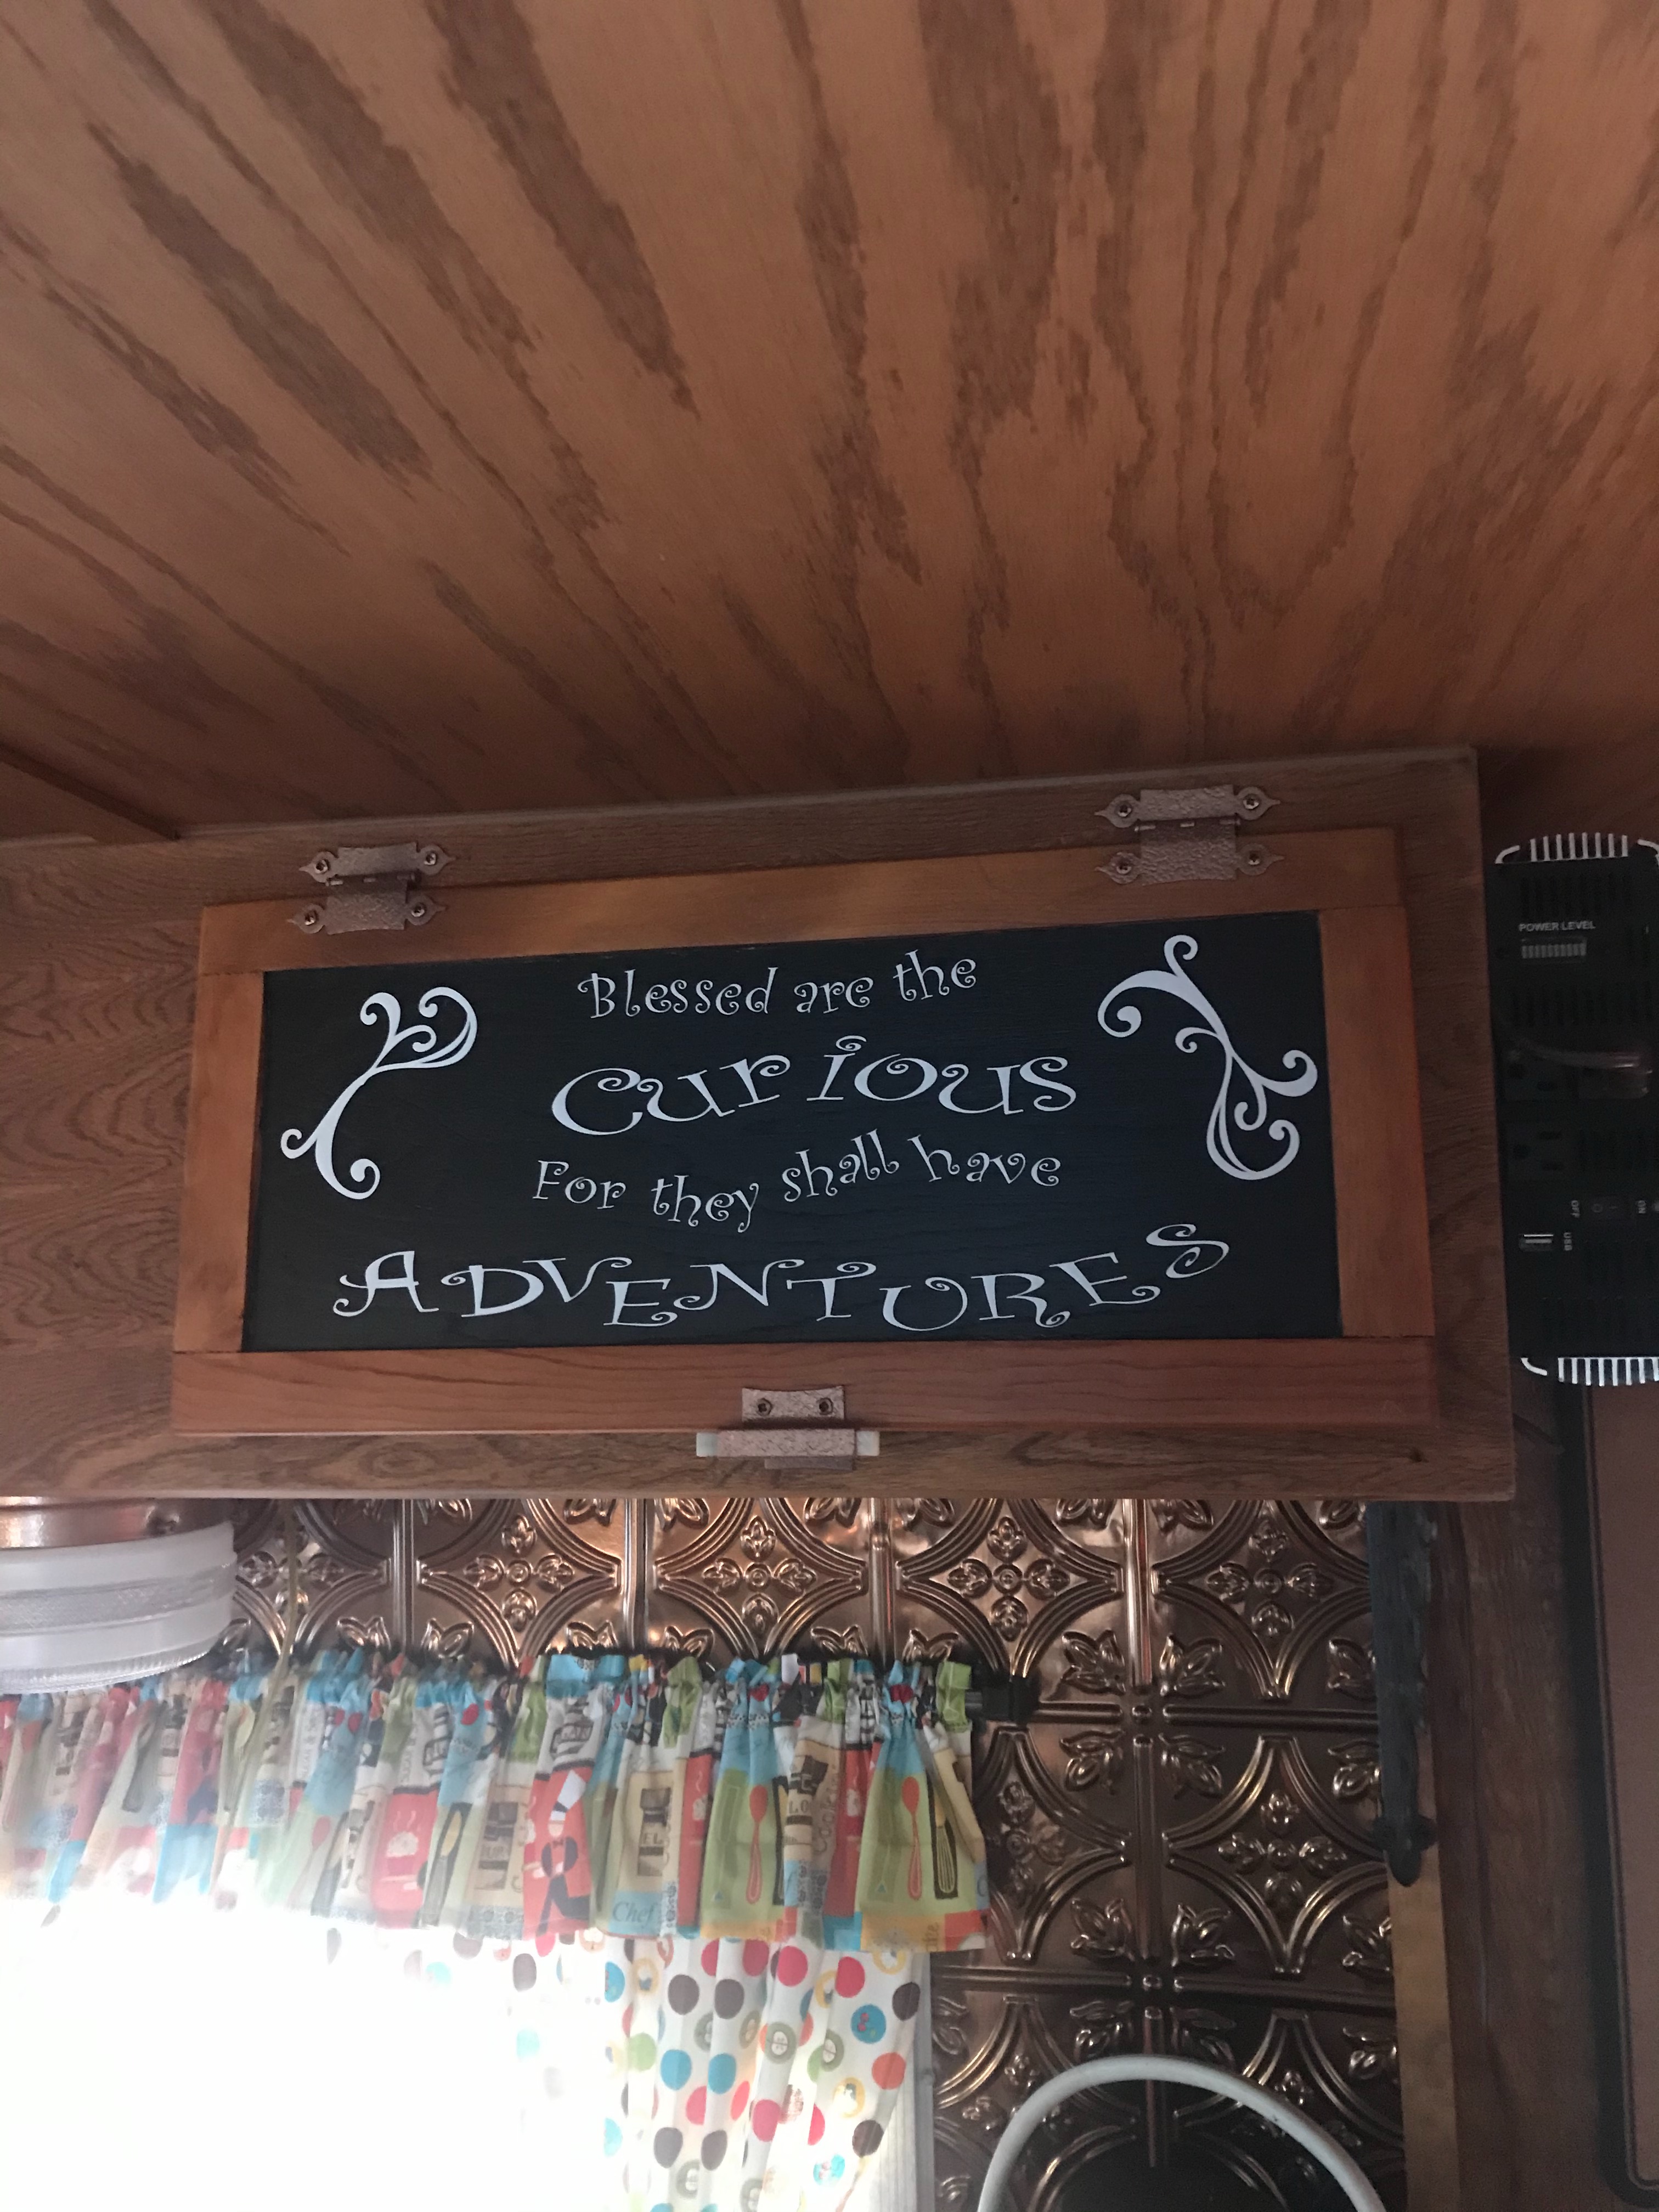 Blessed are the
Curious
For they shall have
ADVENTURES
POWER LEVEL
OFF
ON
USB
Chef